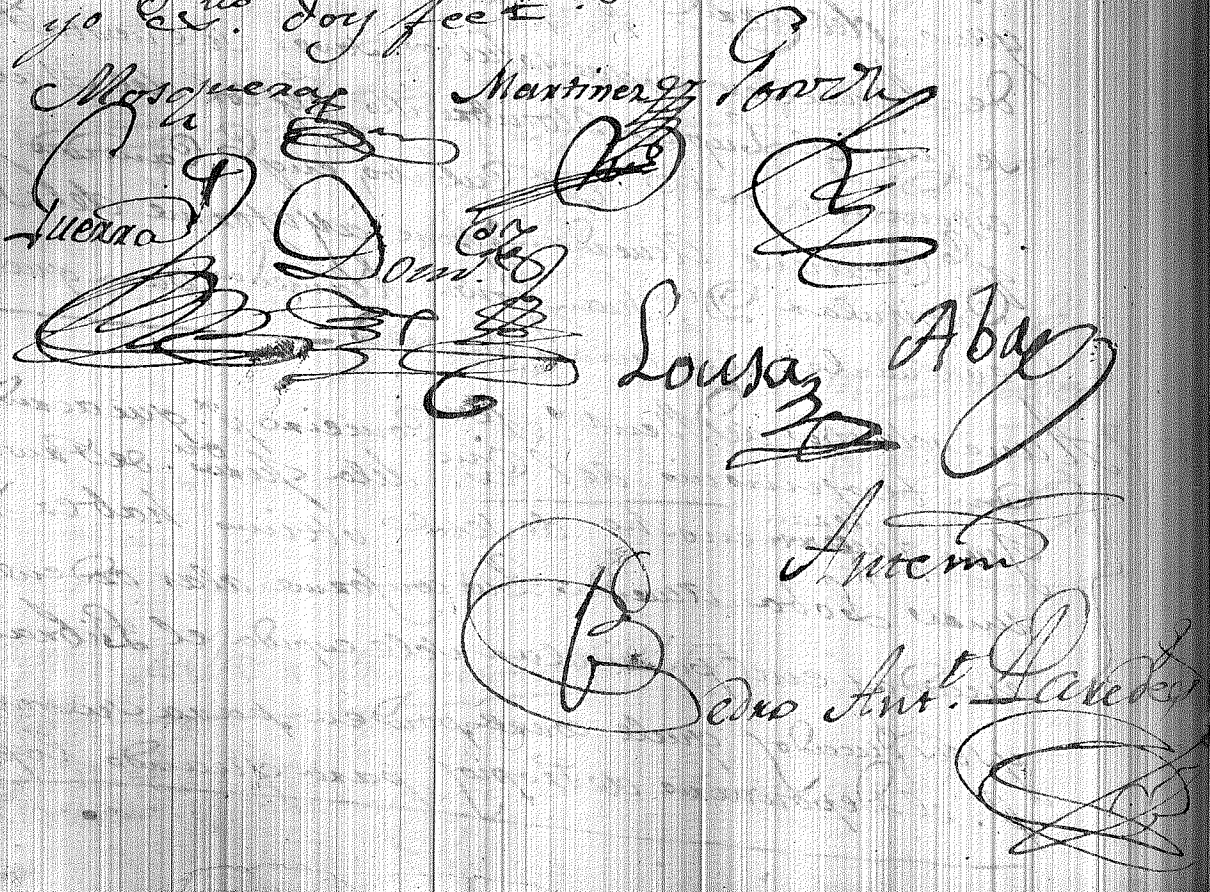 yo Es.no doy fee
Mosquera Martinez
Guerra Dom.z
Lousa Abad
Antemi
Pedro Ant.o Paredes